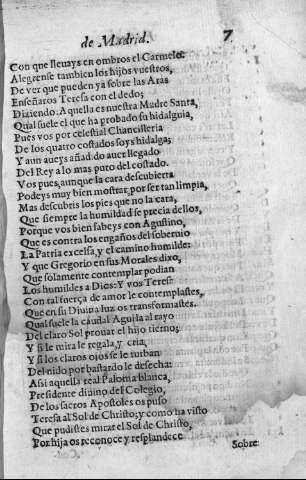 de Madrid. 7
Con que lleuays en ombros el Carmelo:
Alegrense tambien los hijos vuestros,
De ver que pueden ya sobre las Aras
Enseñaros Teresa con el dedo;
Diziendo: Aquella es nuestra Madre Santa,
Qual suele el que ha probado su hidalguia,
Pues vos por celestial Chancilleria
De los quatro costados soys hidalga;
Y aun aueys añadido auer llegado
Del Rey a lo mas puro del costado.
Vos pues, aunque la cara descubierta
Podeys muy bien mostrar, por ser tan limpia,
Mas descubris los pies que no la cara,
Que siempre la humildad se precia dellos,
Porque vos bien sabeys con Agustino,
Que es contra los engaños del soberuio
La Patria excelsa, y el camino humilde:
Y que Gregorio en sus Morales dixo,
Que solamente contemplar podian
Los humildes a Dios: Y vos Teresa
Con tal fuerça de amor le contemplastes,
Que en su Diuina luz os transformastes.
Qual suele la caudal Aguila al rayo
Del claro Sol prouar el hijo tierno;
Y si le mira le regala, y cria,
Y si los claros ojos se le turban
Del nido por bastardo le desecha:
Asi aquella real Paloma blanca,
Presidente diuino del Colegio,
De los sacros Apostoles os puso
Teresa al Sol de Christo; y como ha visto
Que pudistes mirar el Sol de Christo,
Por hija os reconoce y resplandece
Sobre